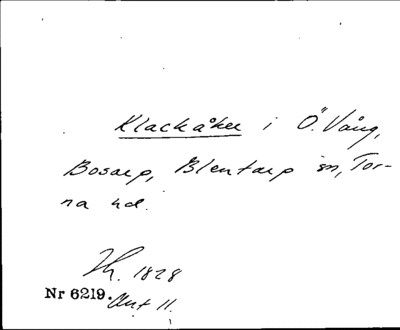 Klackåker i Ö. Vång,
Bosarp, Blentarp sn, Tor-
na hd.
1828
Nr 6219. Akt 11.